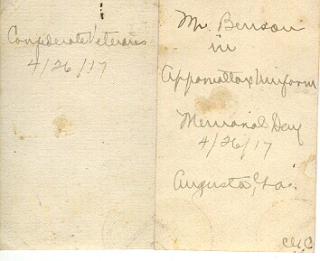 Confederate Veterans
4/26/17
Mr. Benson
in
Appomattox Uniform
Memorial Day
4/26/17
Augusta, Ga.